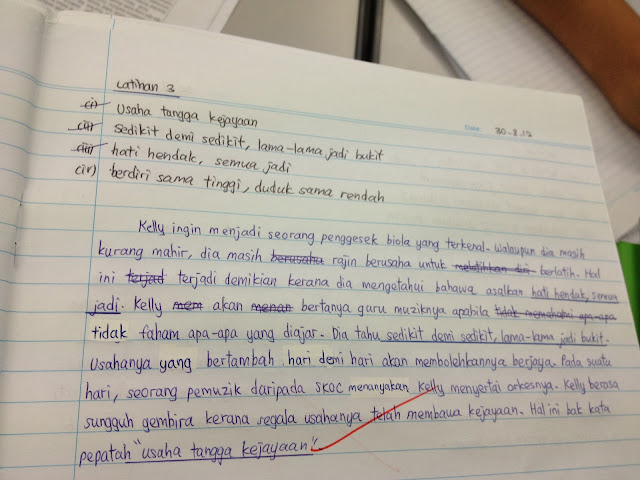 Latihan 3
Date: 30.8.12
(i) Usaha tangga kejayaan
(ii) Sedikit demi sedikit, lama-lama jadi bukit
(iii) hati hendak, semua jadi
(iv) berdiri sama tinggi, duduk sama rendah
Kelly ingin menjadi seorang penggesek biola yang terkenal. Walaupun dia masih
kurang mahir, dia masih berusaha rajin berusaha untuk melatihkan diri berlatih. Hal
ini terjad terjadi demikian kerana dia mengetahui bahawa asalkan hati hendak, semua
jadi. Kelly mem akan menan bertanya guru muziknya apabila tidak memahami apa-apa
tidak faham apa-apa yang diajar. Dia tahu sedikit demi sedikit, lama-lama jadi bukit.
Usahanya yang bertambah hari demi hari akan membolehkannya berjaya. Pada suatu
hari, seorang pemuzik daripada SKOC menanyakan Kelly menyertai orkesnya. Kelly berasa
sungguh gembira kerana segala usahanya telah membawa kejayaan. Hal ini bak kata
pepatah "usaha tangga kejayaan".